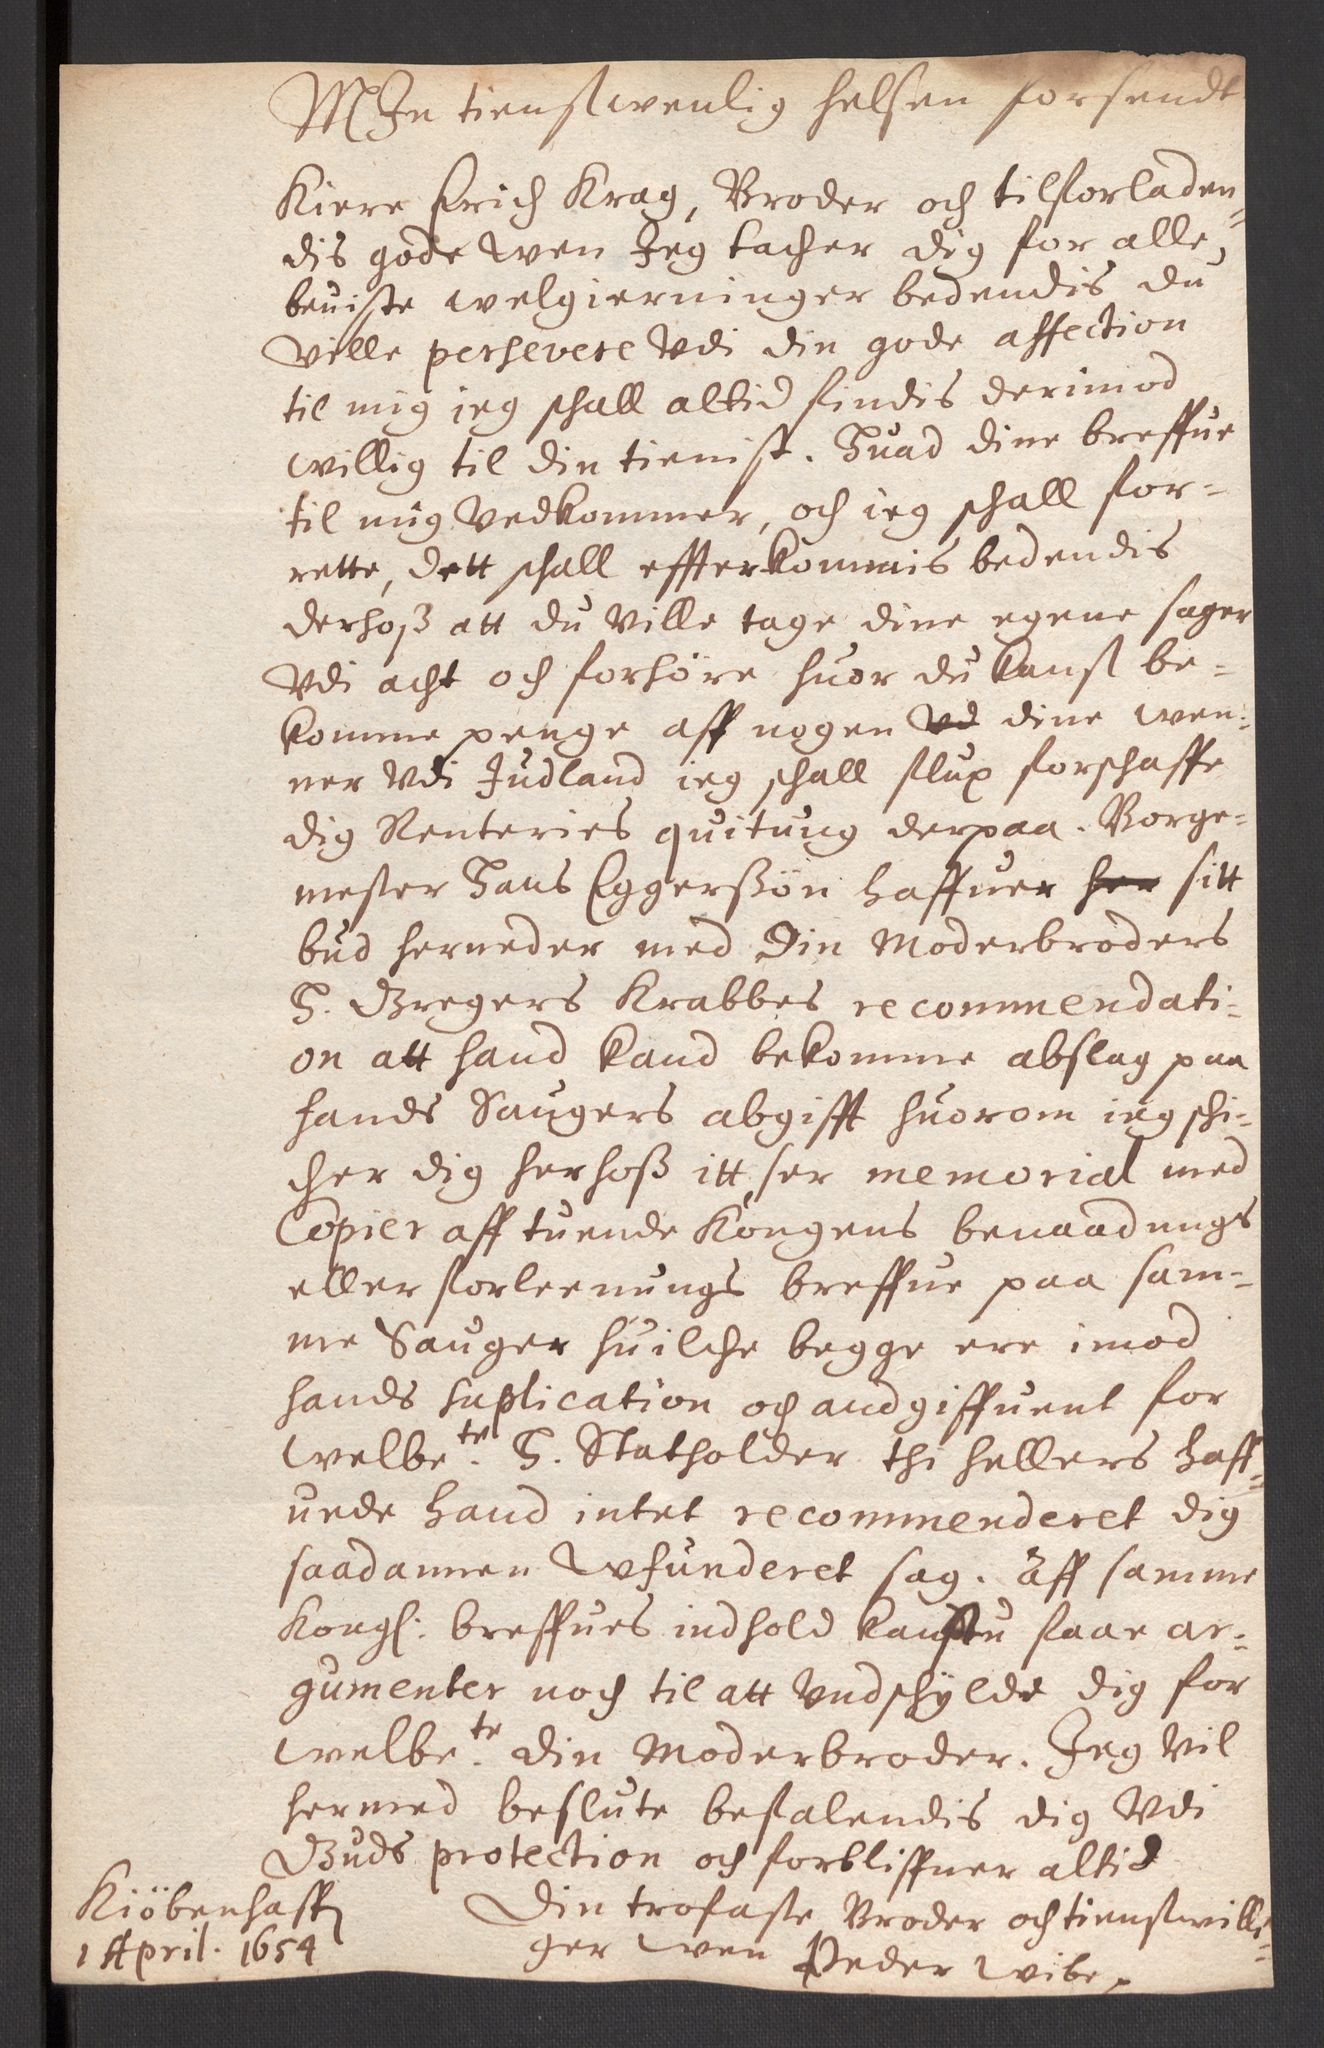 MIn tienstwenlig helsen forsendt
Kiere Erich Krag, Broder och tilforladen-
dis gode wen Jeg tacher dig for alle
beuiste welgierninger bedendis du
ville persevere Vdi din gode affection
til mig jeg schall altid findis derimod
willig til din tienist. Huad dine breffue
til mig Vedkommer, och ieg schall for-
rette, dett schall effterkommis bedendis
derhoß att du Ville tage dine egene sager
Vdi acht och forhöre huor du kanst be-
komme penge aff nogen vd dine wen-
ner Vdi Judland ieg schall flux forschaffe
dig Renteries quitung derpaa. Borge-
mester Hans Eggerßön haffuer her sitt
bud herneder med Din Moderbroders
H. Gregers Krabbes recommendati-
on att hand kand bekomme afslag paa
hands Saugers abgifft huorom ieg schi-
cher dig herhoß itt ser memorial med
Copier aff tuende Kongens benaadnings
eller forleenungs breffue paa sam-
me Sauger huilche begge ere imod
hands suplication och andgiffuent for
welbe.te H. Statholder thi hellers haff-
uede hand intet recommenderet dig
saadannen Wfunderet sag. Aff samme
Kongl: breffues indhold kanstu faae ar-
gumenter noch til att Vndschylde dig for
welbe.te din Moderbroder. Jeg Vil
hermed beslute befalendis dig Vdi
Guds protection och forbliffuer altid
Kiöbenhaffn
1 April. 1654
Din trofaste Broder och tienstwilli-
ger wen Peder Wibe